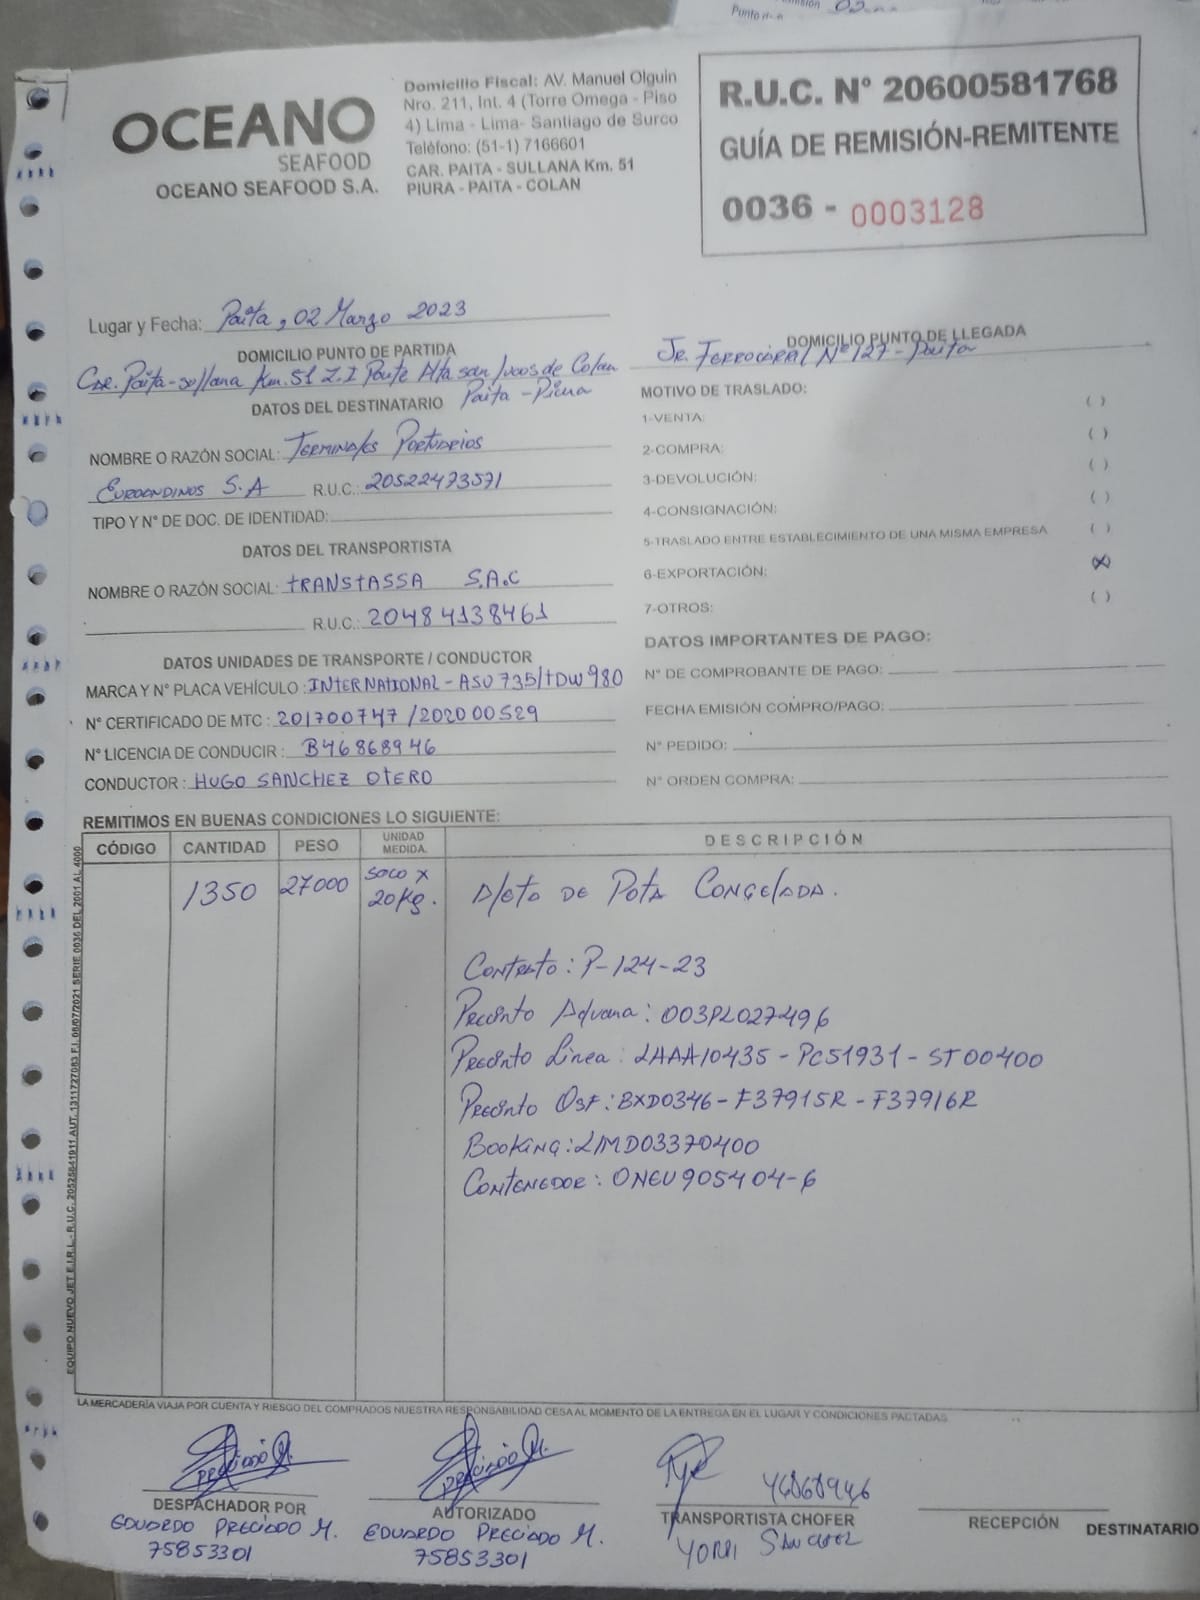 OCEANO
SEAFOOD
OCEANO SEAFOOD S.A.
Domicilio Fiscal: AV. Manuel Olguin
Nro. 211, Int. 4 (Torre Omega - Piso
4) Lima - Lima- Santiago de Surco
Teléfono: (51-1) 7166601
CAR. PAITA - SULLANA Km. 51
PIURA - PAITA - COLAN
R.U.C. N° 20600581768
GUÍA DE REMISIÓN-REMITENTE
0036 - 0003128
Lugar y Fecha: Paita, 02 Marzo 2023
DOMICILIO PUNTO DE PARTIDA
Car. Paita-sullana Km. 51 Z.I Parte Alta san Lucas de Colan
Paita - Piura
DOMICILIO PUNTO DE LLEGADA
Jr. Ferrocarral N° 127 - Paita
DATOS DEL DESTINATARIO
NOMBRE O RAZÓN SOCIAL: Terminales Portuarios
Euroandinos S.A R.U.C.: 20522473571
TIPO Y N° DE DOC. DE IDENTIDAD:
DATOS DEL TRANSPORTISTA
NOMBRE O RAZÓN SOCIAL: TRANSTASSA S.A.C
R.U.C.: 20484138461
DATOS UNIDADES DE TRANSPORTE / CONDUCTOR
MARCA Y N° PLACA VEHÍCULO: INTERNATIONAL - ASU 735/TDW980
N° CERTIFICADO DE MTC: 201700747 /202000529
N° LICENCIA DE CONDUCIR: B46868946
CONDUCTOR: HUGO SANCHEZ OTERO
MOTIVO DE TRASLADO:
1-VENTA: ( )
2-COMPRA: ( )
3-DEVOLUCIÓN: ( )
4-CONSIGNACIÓN: ( )
5-TRASLADO ENTRE ESTABLECIMIENTO DE UNA MISMA EMPRESA ( )
6-EXPORTACIÓN: (X)
7-OTROS: ( )
DATOS IMPORTANTES DE PAGO:
N° DE COMPROBANTE DE PAGO:
FECHA EMISIÓN COMPRO/PAGO:
N° PEDIDO:
N° ORDEN COMPRA:
REMITIMOS EN BUENAS CONDICIONES LO SIGUIENTE:
CÓDIGO CANTIDAD PESO UNIDAD MEDIDA. DESCRIPCIÓN
1350 27000 saco x 20Kg. Aleta de Pota Congelada.
Contrato: P-124-23
Precinto Aduana: 003PL027496
Precinto Linea: LHAA10435 - PC51931 - ST00400
Precinto Osf: BXD0346 - F37915R - F37916R
Booking: LIMD03370400
Contenedor: ONEU905404-6
EQUIPO NUEVO JET E.I.R.L. - R.U.C. 20525841911 AUT. 1311727083 F.I. 06/07/2021 SERIE 0036 DEL 2001 AL 4000
LA MERCADERÍA VIAJA POR CUENTA Y RIESGO DEL COMPRADOS NUESTRA RESPONSABILIDAD CESA AL MOMENTO DE LA ENTREGA EN EL LUGAR Y CONDICIONES PACTADAS
Preciado M. Preciado M. 46868946
DESPACHADOR POR AUTORIZADO TRANSPORTISTA CHOFER RECEPCIÓN DESTINATARIO
EDUARDO PRECIADO M. EDUARDO PRECIADO M.
75853301 75853301